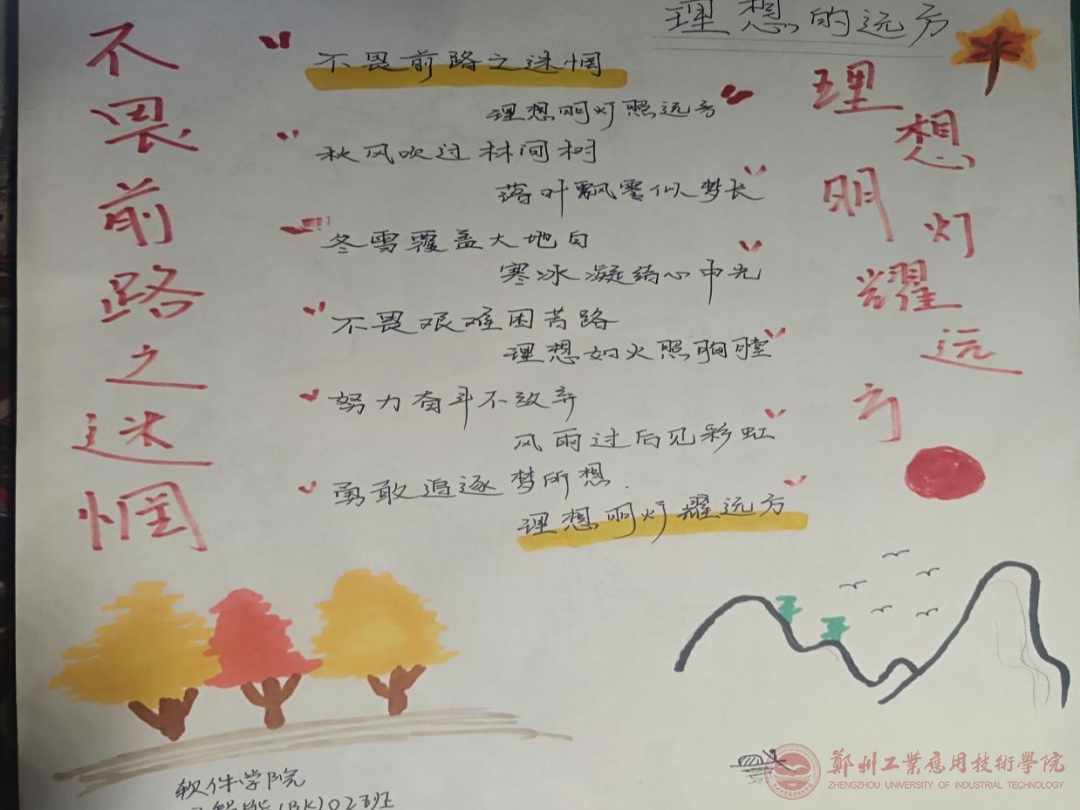 理想的远方
不畏前路之迷惘
理想明灯耀远方
"不畏前路之迷惘
理想明灯照远方"
"秋风吹过林间树
落叶飘零似梦长"
"冬雪覆盖大地白
寒冰凝结心中光"
"不畏艰难困苦路
理想如火照胸膛"
"努力奋斗不放弃
风雨过后见彩虹"
"勇敢追逐梦所想.
理想明灯耀远方"
软件学院
02班
鄭州工業應用技術學院
ZHENGZHOU UNIVERSITY OF INDUSTRIAL TECHNOLOGY